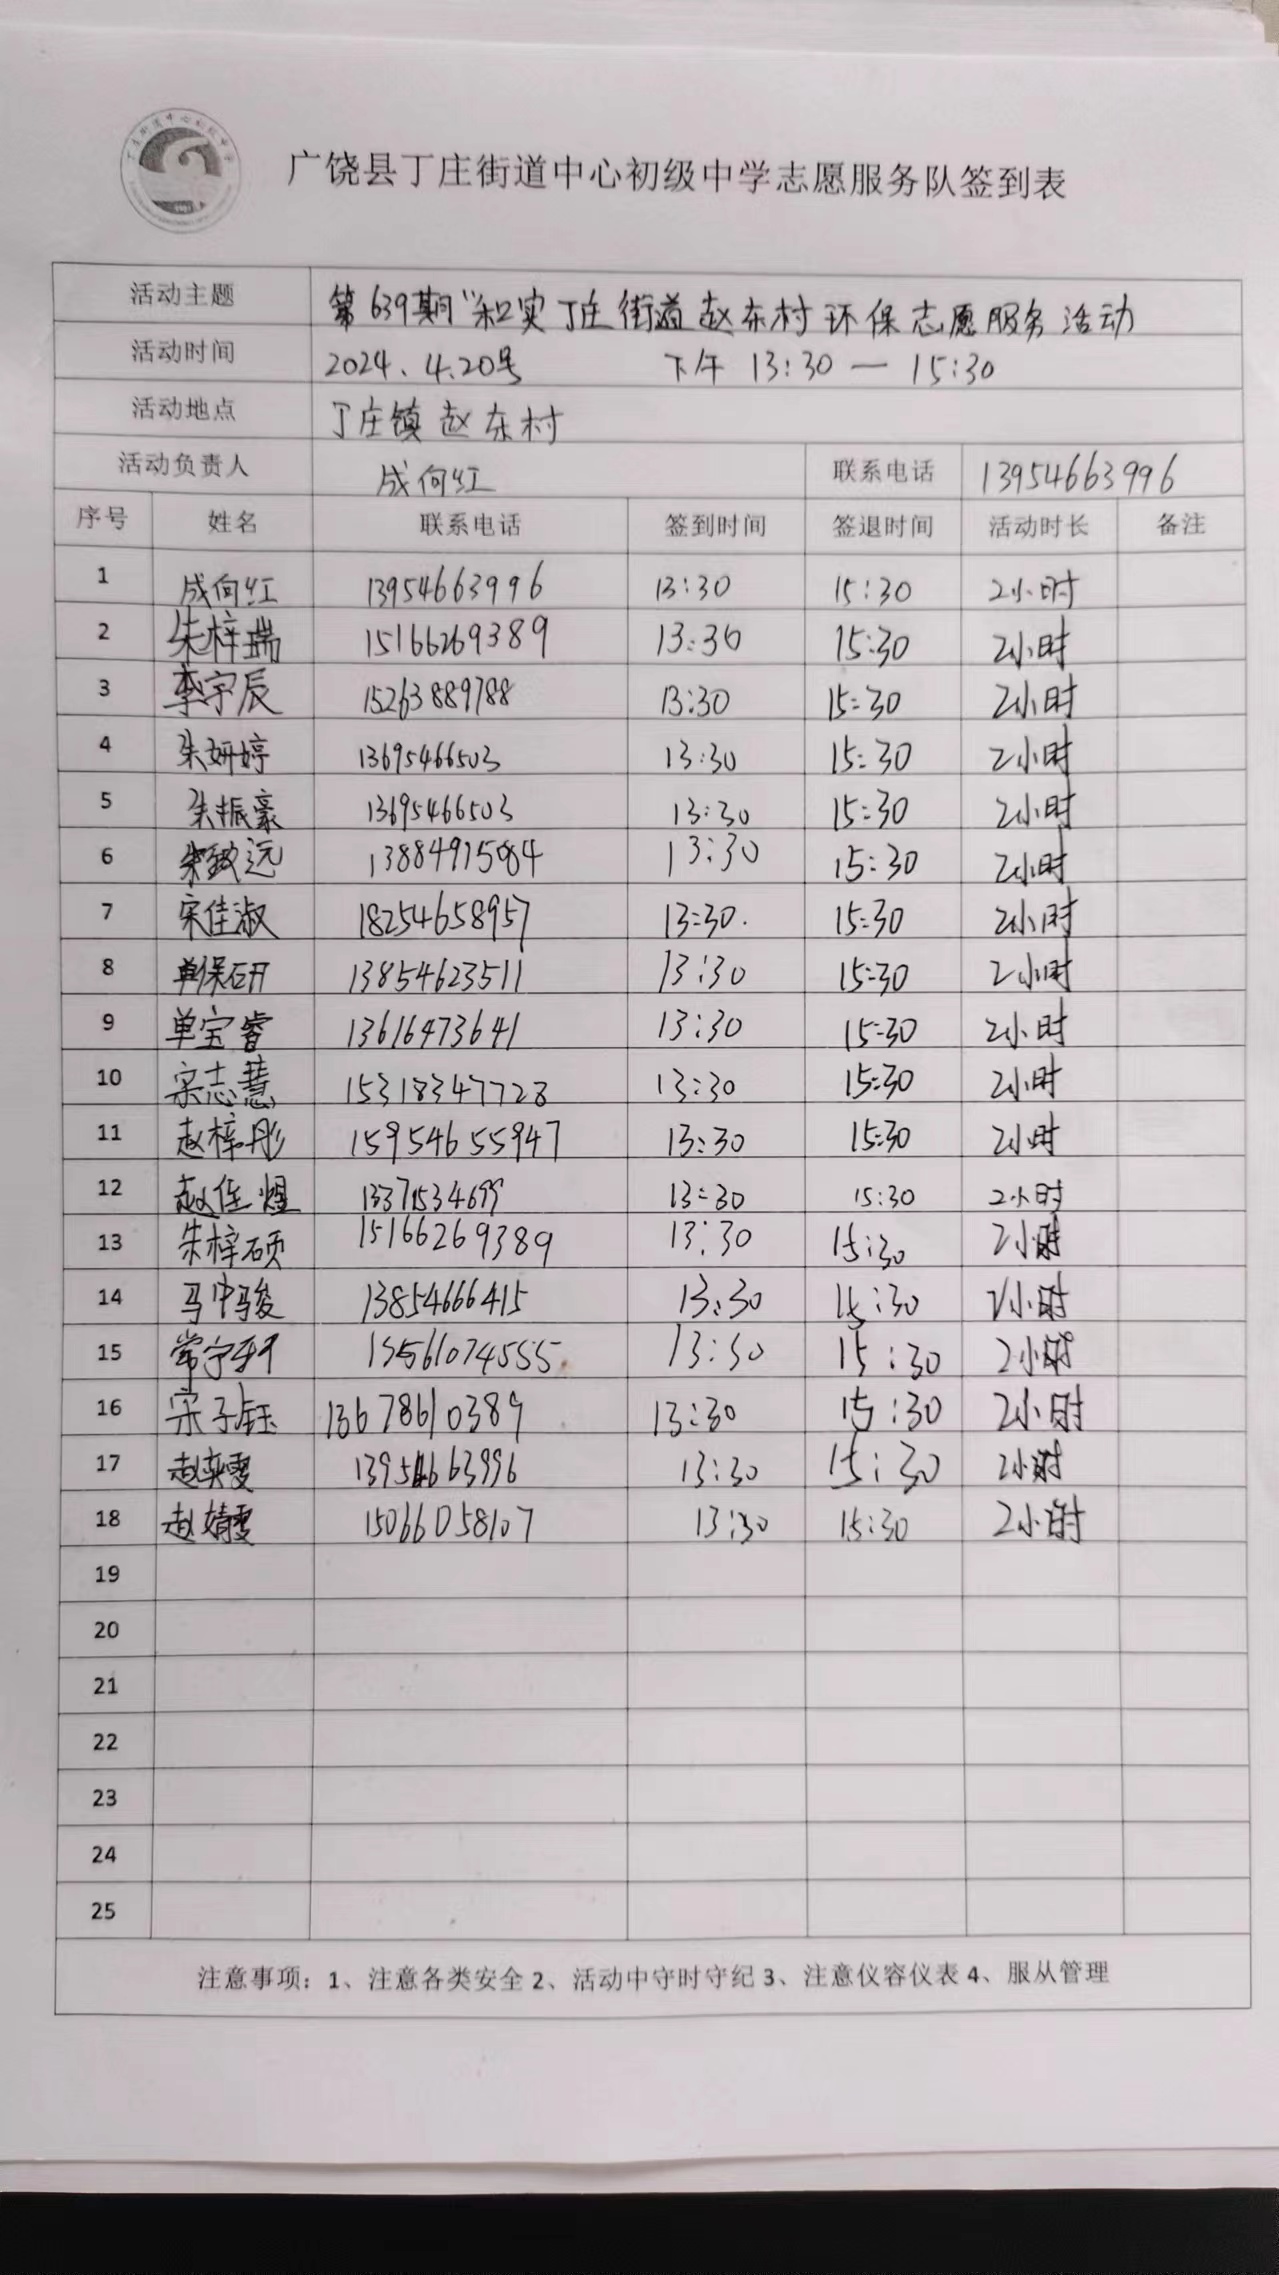 广饶县丁庄街道中心初级中学志愿服务队签到表
活动主题 第639期“和实丁庄街道赵东村环保志愿服务活动
活动时间 2024.4.20号 下午 13:30 — 15:30
活动地点 丁庄镇赵东村
活动负责人 成向红 联系电话 13954663996
序号 姓名 联系电话 签到时间 签退时间 活动时长 备注
1 成向红 13954663996 13:30 15:30 2小时
2 朱梓瑞 15166269389 13:30 15:30 2小时
3 李宇辰 15263889788 13:30 15:30 2小时
4 朱妍婷 13695466503 13:30 15:30 2小时
5 朱振豪 13695466503 13:30 15:30 2小时
6 朱致远 13884915084 13:30 15:30 2小时
7 宋佳淑 18254658957 13:30. 15:30 2小时
8 单保研 13854623511 13:30 15:30 2小时
9 单宝睿 13616473641 13:30 15:30 2小时
10 宋志慧 15318347728 13:30 15:30 2小时
11 赵梓彤 15954655947 13:30 15:30 2小时
12 赵佳煜 13371534699 13:30 15:30 2小时
13 朱梓硕 15166269389 13:30 15:30 2小时
14 马中骏 13854666415 13:30 15:30 2小时
15 常宁 15561074555 13:30 15:30 2小时
16 宋子钰 13678610389 13:30 15:30 2小时
17 赵奕雯 13954663996 13:30 15:30 2小时
18 赵婧雯 15066058107 13:30 15:30 2小时
19
20
21
22
23
24
25
注意事项：1、注意各类安全 2、活动中守时守纪 3、注意仪容仪表 4、服从管理